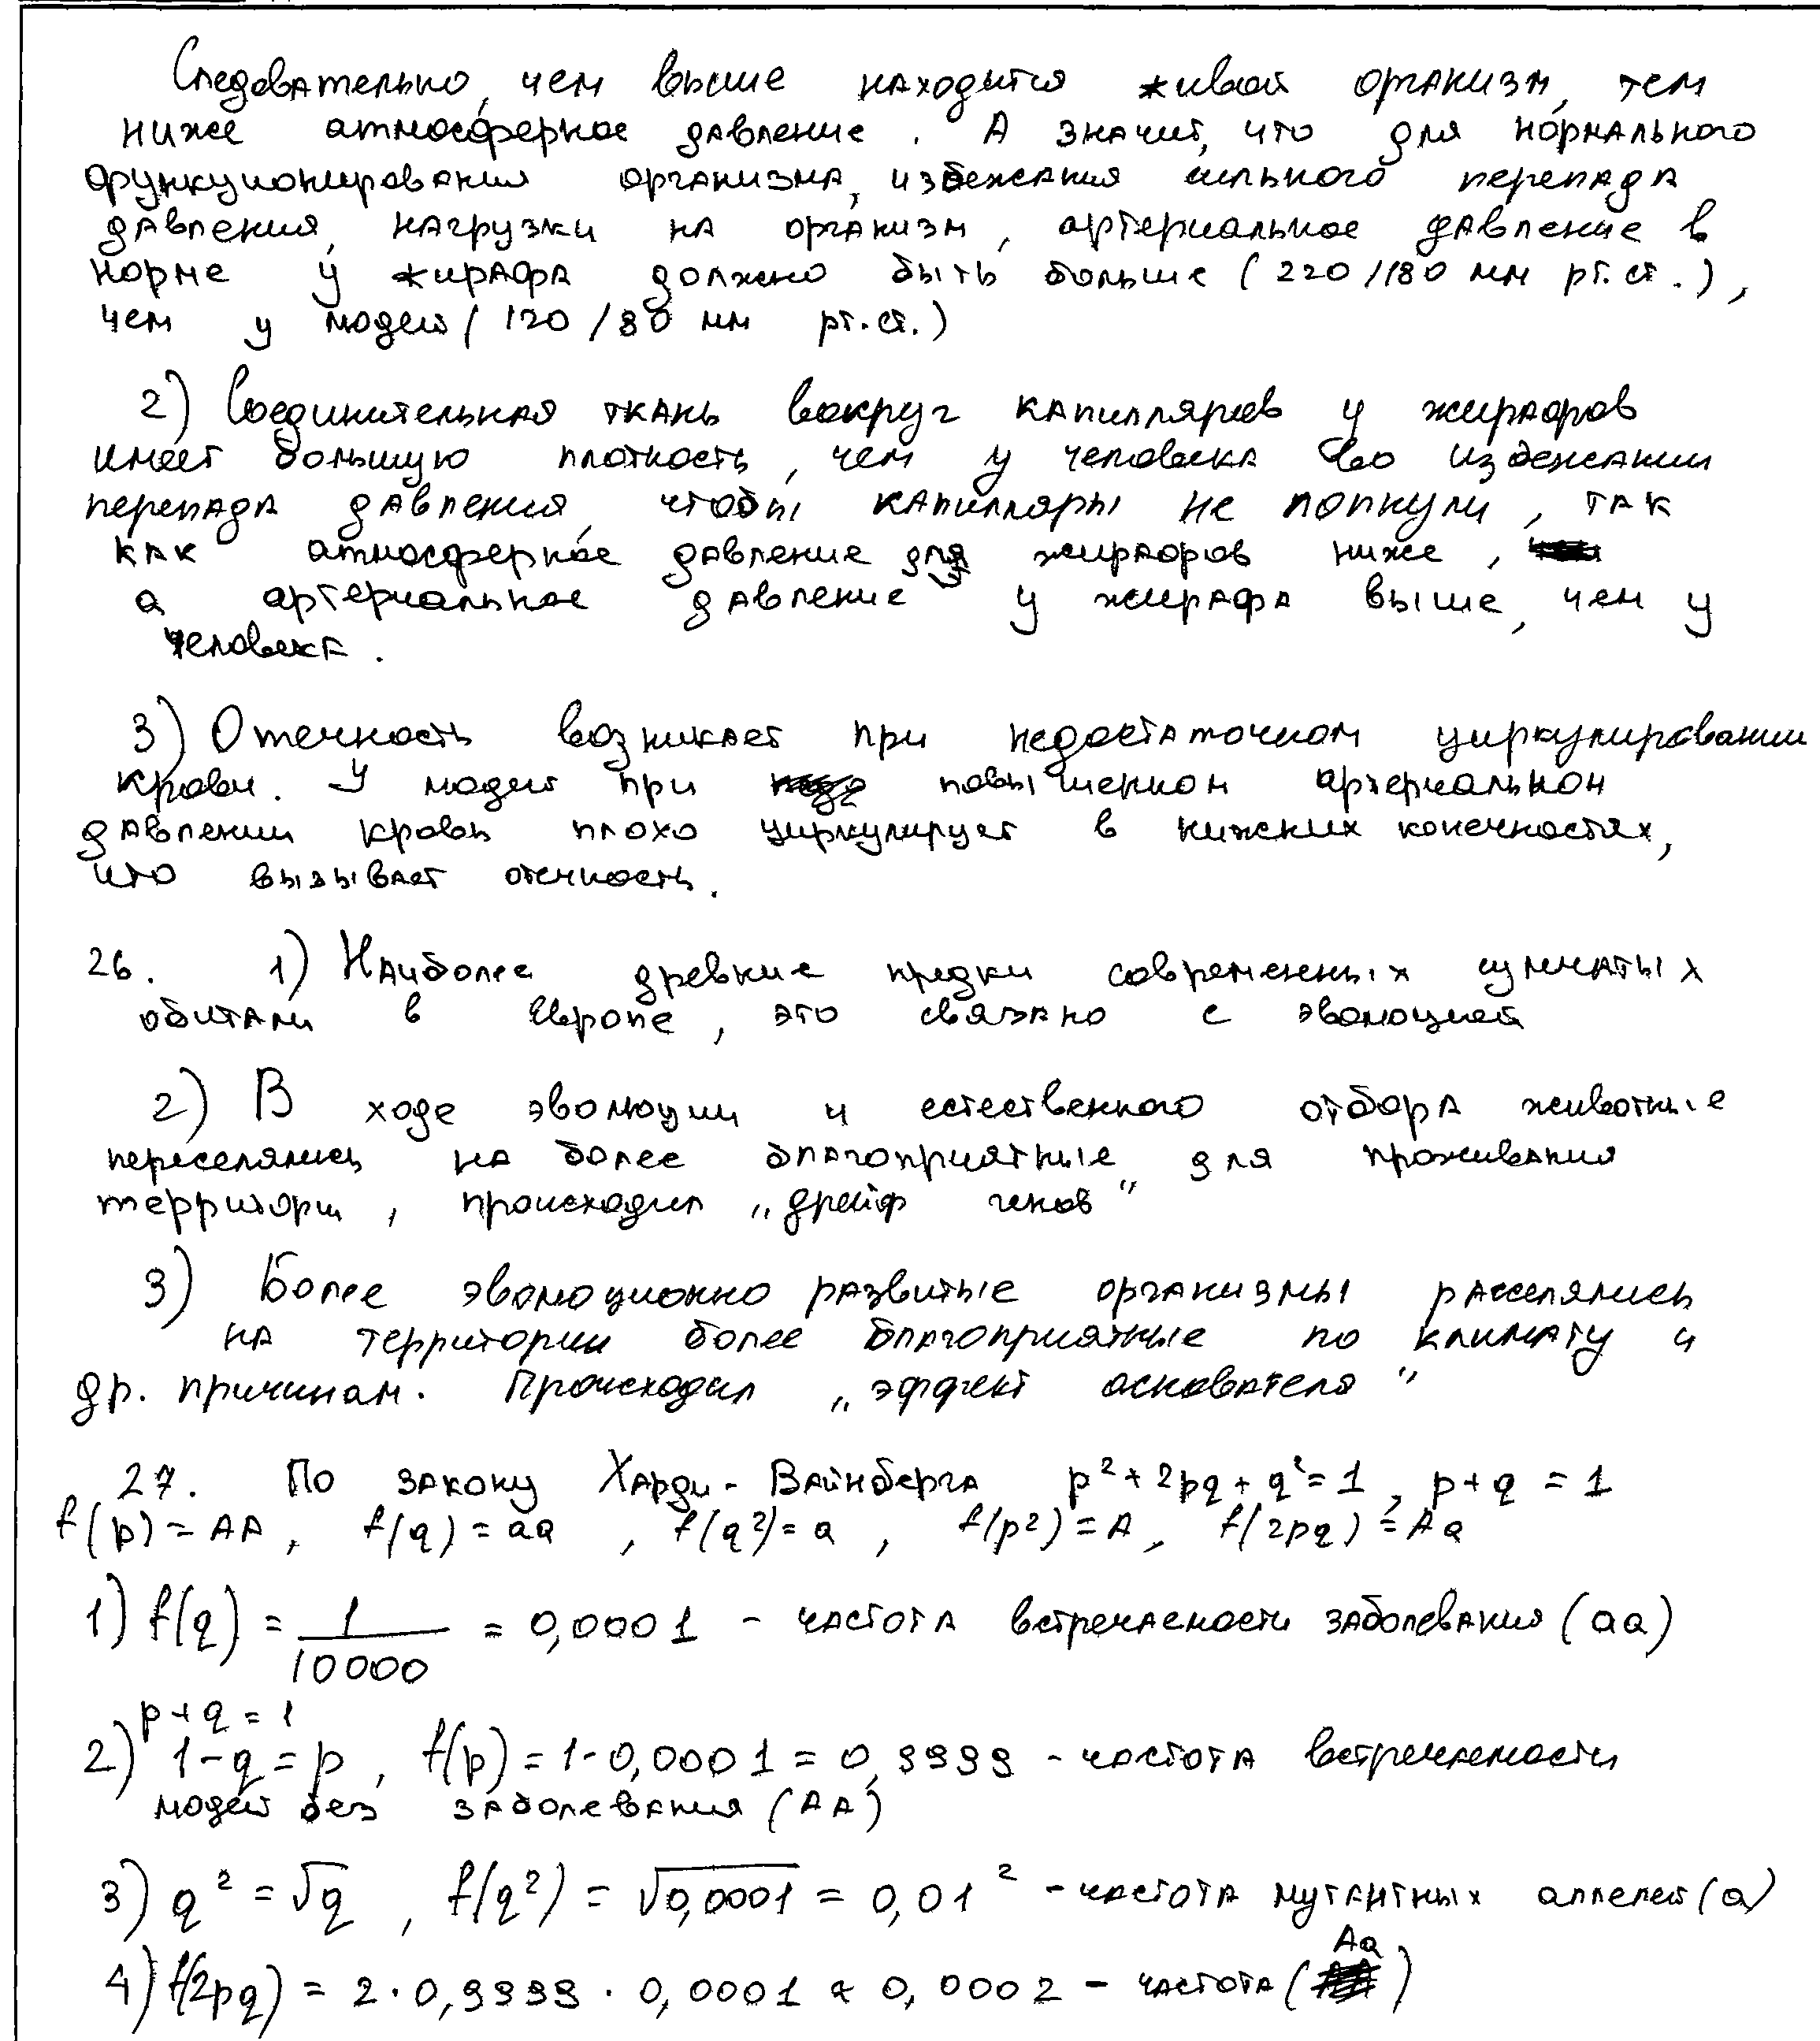 Следовательно, чем выше находится живой организм, тем
ниже атмосферное давление. А значит, что для нормального
функционирования организма, избежания сильного перепада
давления, нагрузки на организм, артериальное давление в
норме у жирафа должно быть больше (220/180 мм рт.ст.),
чем у людей (120/80 мм рт.ст.)
2) Соединительная ткань вокруг капилляров у жирафов
имеет большую плотность, чем у человека во избежании
перепада давления, чтобы капилляры не лопнули, так
как атмосферное давление для жирафов ниже,
а артериальное давление у жирафа выше, чем у
человека.
3) Отечность возникает при недостаточном циркулировании
крови. У людей при повышенном артериальном
давлении кровь плохо циркулирует в нижних конечностях,
что вызывает отечность.
26. 1) Наиболее древние предки современных сумчатых
обитали в Европе, это связано с эволюцией
2) В ходе эволюции и естественного отбора животные
переселялись на более благоприятные для проживания
территори, происходил „дрейф генов“
3) Более эволюционно развитые организмы расселялись
на территории более благоприятные по климату и
др. причинам. Происходил „эффект основателя“
27. По закону Харди-Вайнберга p²+2pq+q²=1, p+q=1
f(p)=AA, f(q)=aa, f(q²)=a, f(p²)=A, f(2pq)=Aa
1) f(q) = 1/10000 = 0,0001 - частота встречаемости заболевания (aa)
p+q=1
2) 1-q=p, f(p)=1-0,0001=0,9999 - частота встречаемости
людей без заболевания (AA)
3) q²=√q, f(q²)=√0,0001=0,01² - частота мутантных аллелей (a)
4) f(2pq)=2·0,9999·0,0001≈0,0002 - частота (Aa)